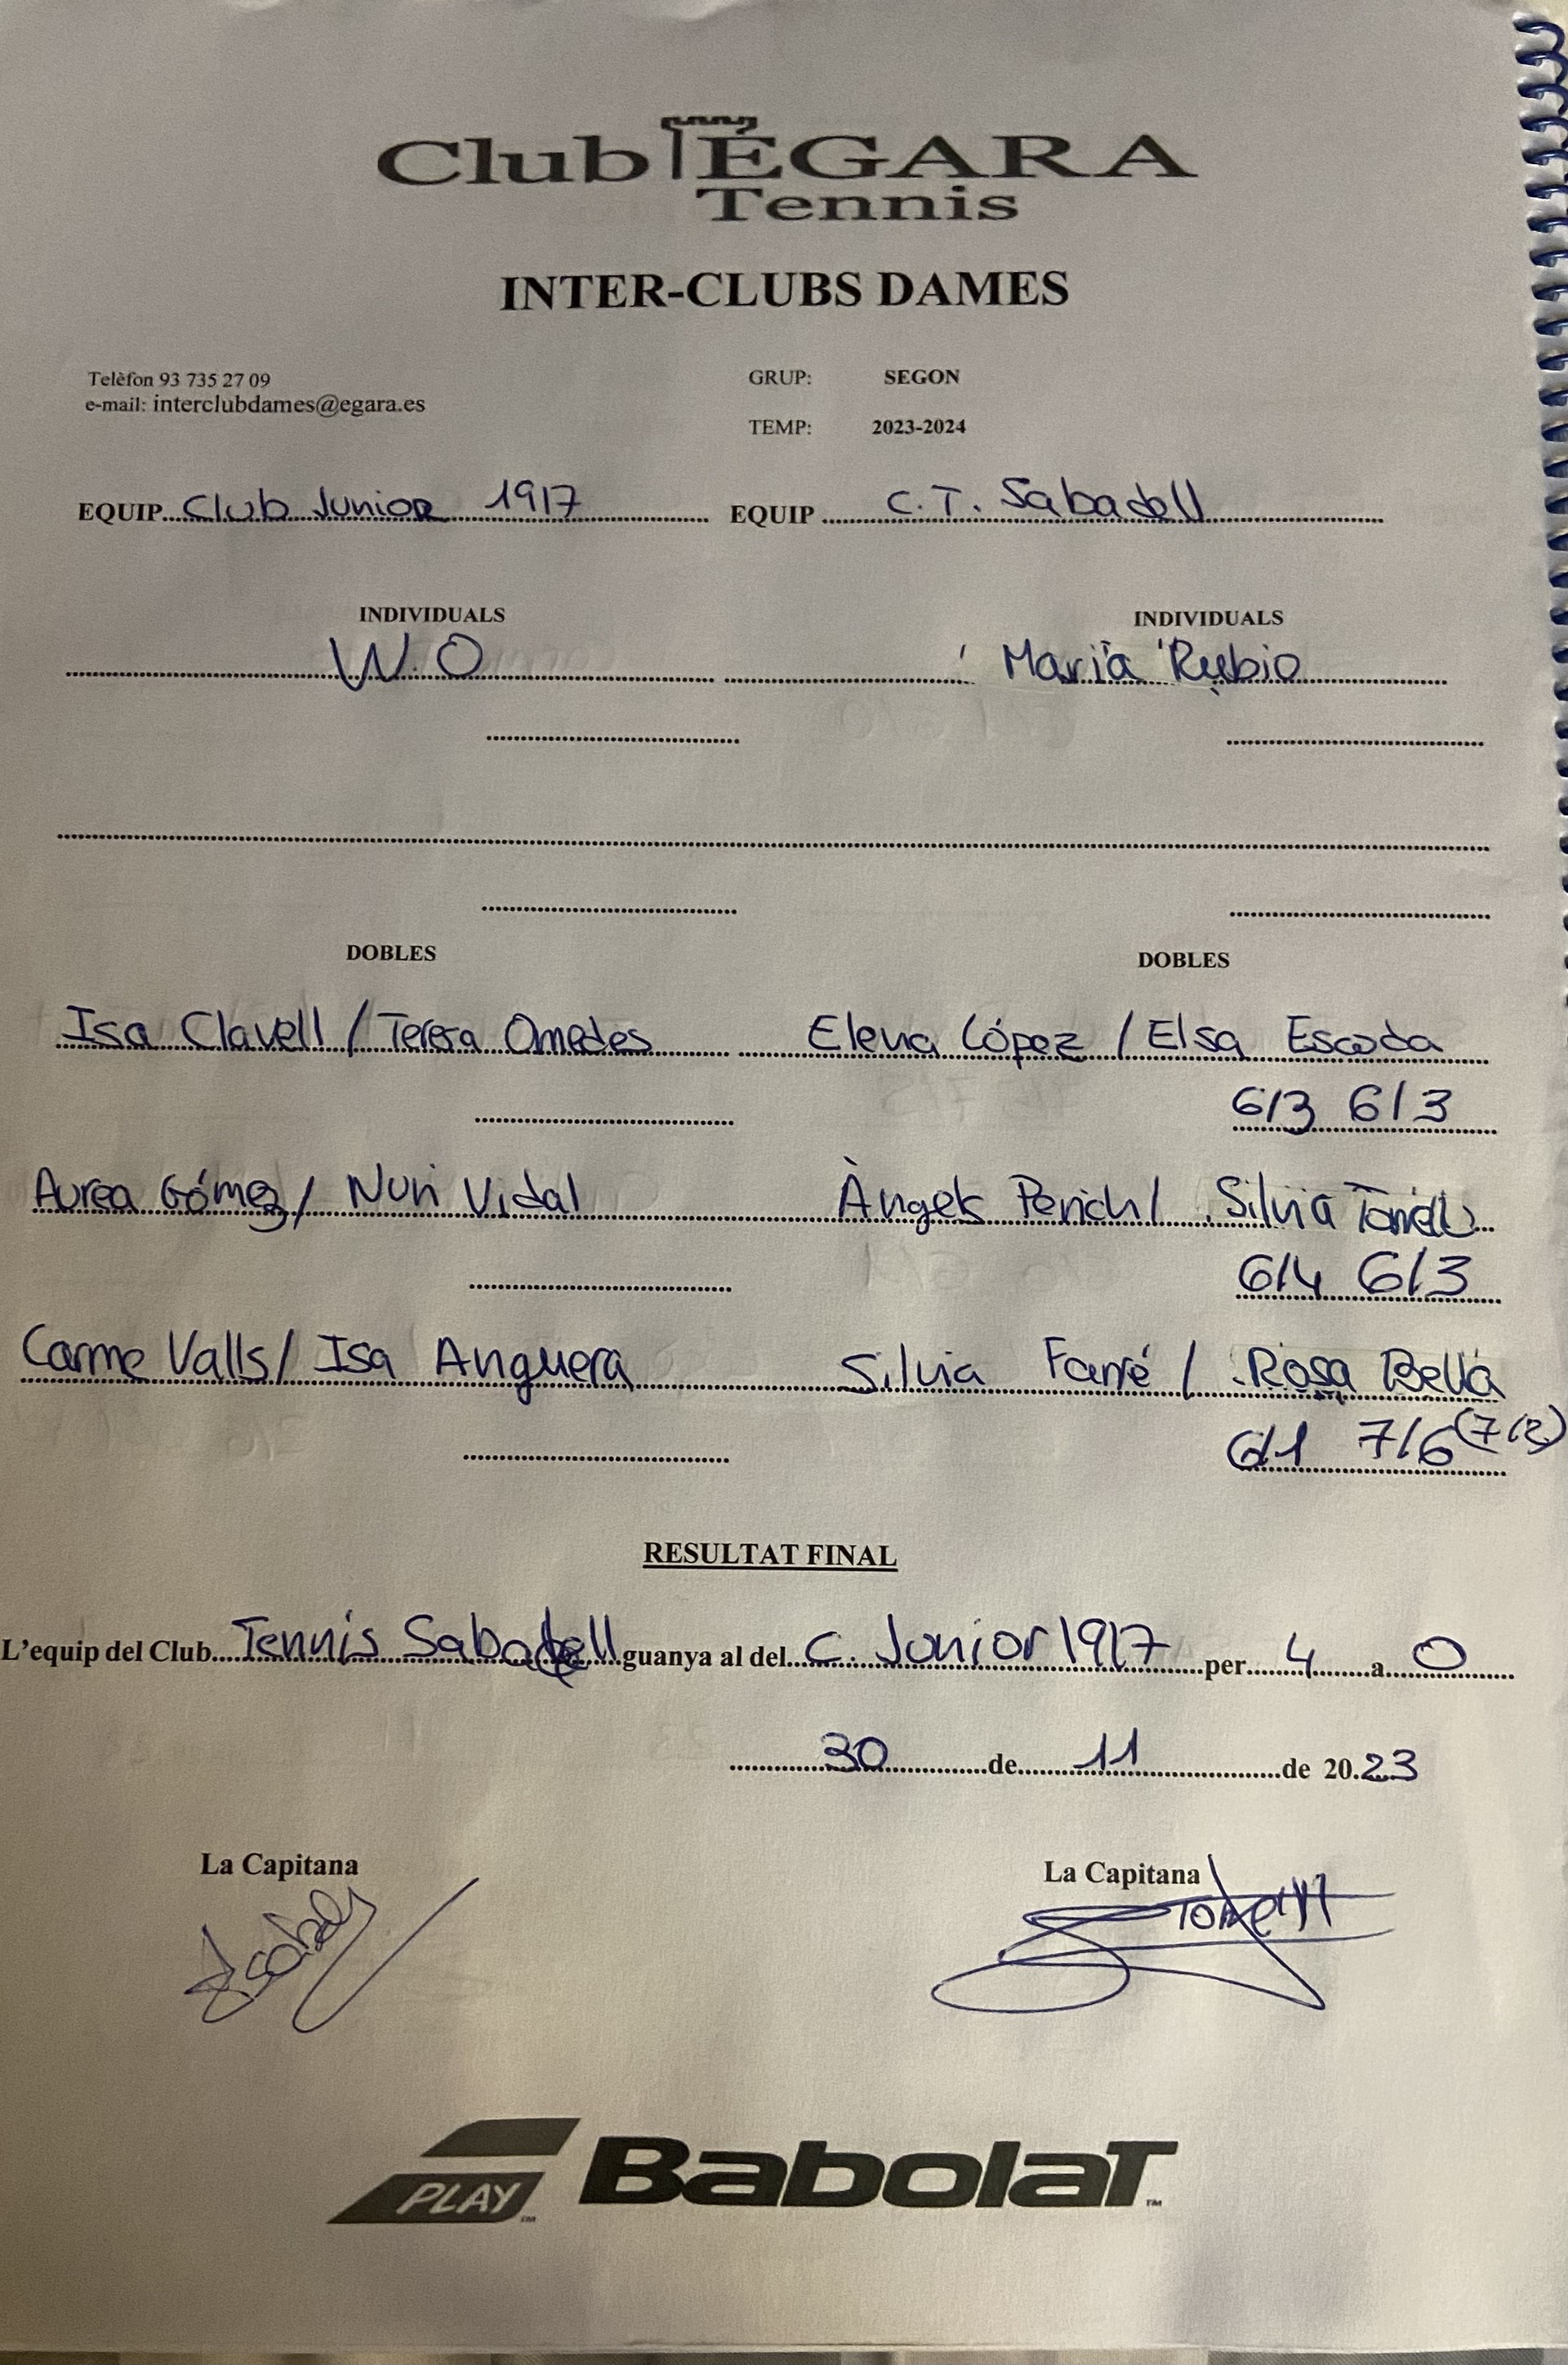 Club ÉGARA
Tennis
INTER-CLUBS DAMES
Telèfon 93 735 27 09
e-mail: interclubdames@egara.es
GRUP: SEGON
TEMP: 2023-2024
EQUIP Club Junior 1917 EQUIP C.T. Sabadell
INDIVIDUALS INDIVIDUALS
W.O Maria Rubio
DOBLES DOBLES
Isa Clavell / Teresa Omedes Elena López / Elsa Escoda
6/3 6/3
Aurea Gómez / Nuri Vidal Àngels Perich / Silvia
6/4 6/3
Carme Valls / Isa Anguera Silvia Farré / Rosa Bella
6/1 7/6 (7/2)
RESULTAT FINAL
L'equip del Club Tennis Sabadell guanya al del C. Junior 1917 per 4 a 0
30 de 11 de 2023
La Capitana La Capitana
PLAY BabolaT